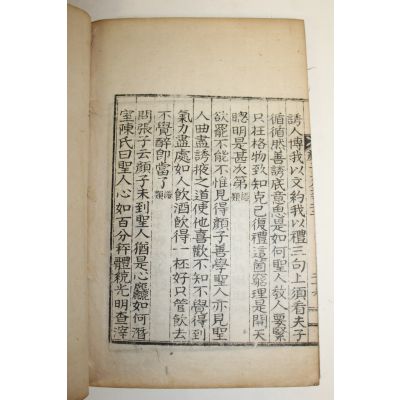 誘人博我以文約我以禮三句上須看夫子
循循然善誘底意思是如何聖人敎人要緊
只在格物致知克己復禮這箇窮理是開天
聰明是甚次第
欲罷不能不惟見得顔子善學聖人亦見聖
人曲盡誘掖之道使他喜歡不知不覺得到
氣力盡處如人飮酒飮得一杯好只管飮去
不覺醉郎當了
問張子云顔子未到聖人猶是心麤如何潛
室陳氏曰聖人心如百分秤體統光明査滓